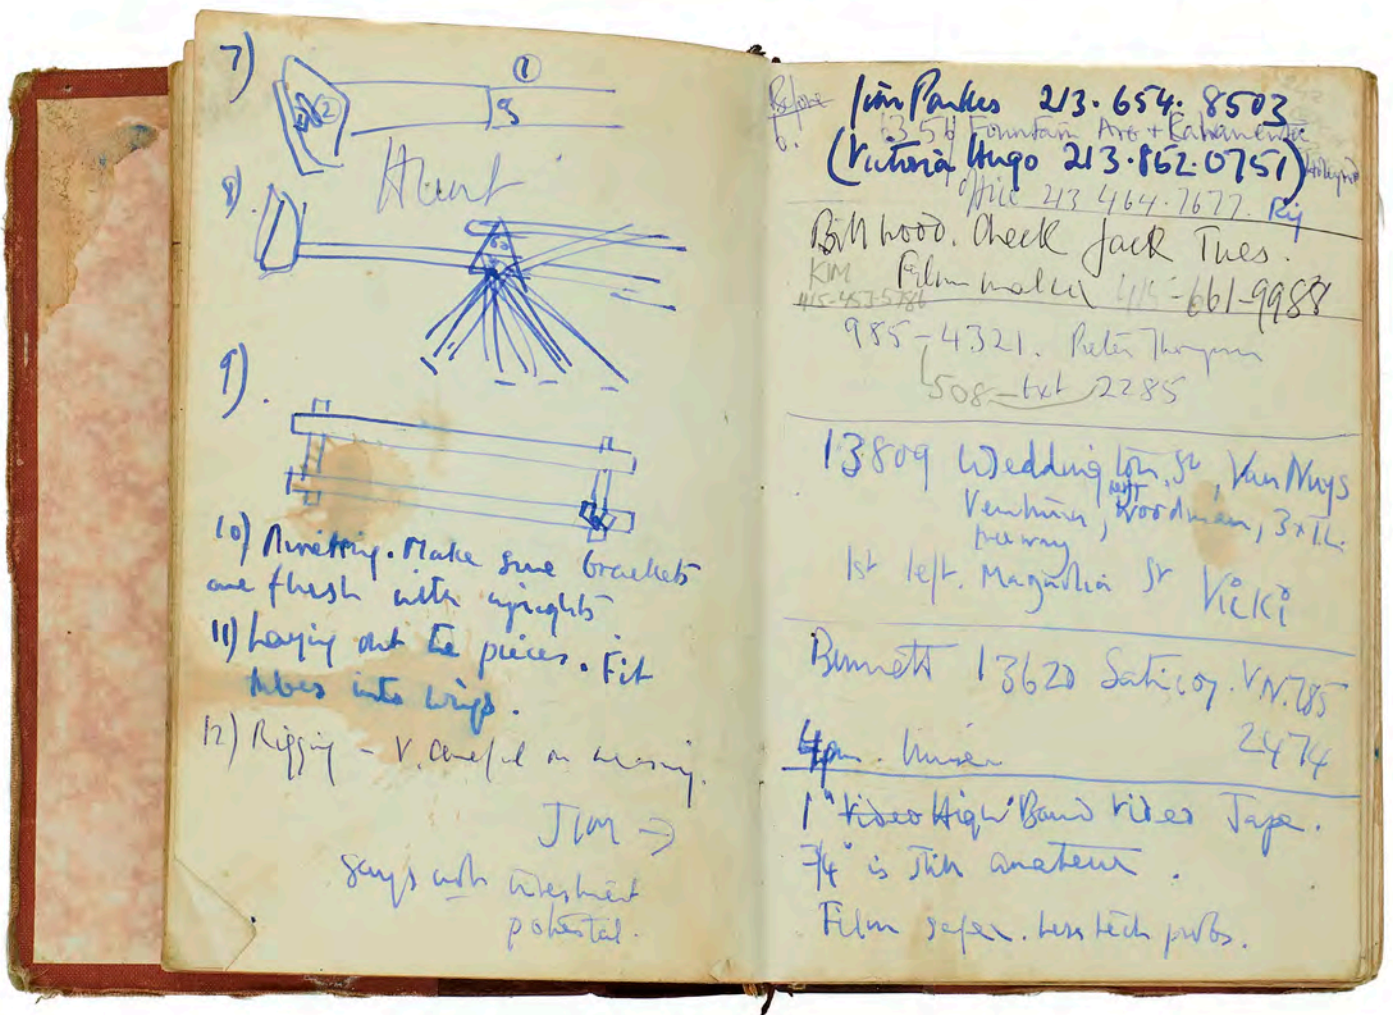 7)
1
2
8).
9).
10) Riveting. Make sure brackets
are flush with uprights
11) Laying out the pieces. Fit
tubes into wings.
12) Rigging - V. careful on
JIM →
says with
potential.
Before
6.
Jim Parkes 213.654.8503
Fountain Ave +
(Victoria Hugo 213.862.0751)
office 213 464.7677. Rig
Bill Wood. Check Jack Tues.
KIM
Film maker 415-661-9988
415-453-5786
985-4321. Peter Thompson
508-txt 2285
13809 Weddington St, Van Nuys
Ventura, Woodman, 3
freeway
1st left. Magnolia St Vicki
Bennett 13620 Saticoy. V.N. 785
2474
4pm.
1" Video High Band Video Tape.
3/4" is still amateur.
Film safer. Less tech probs.